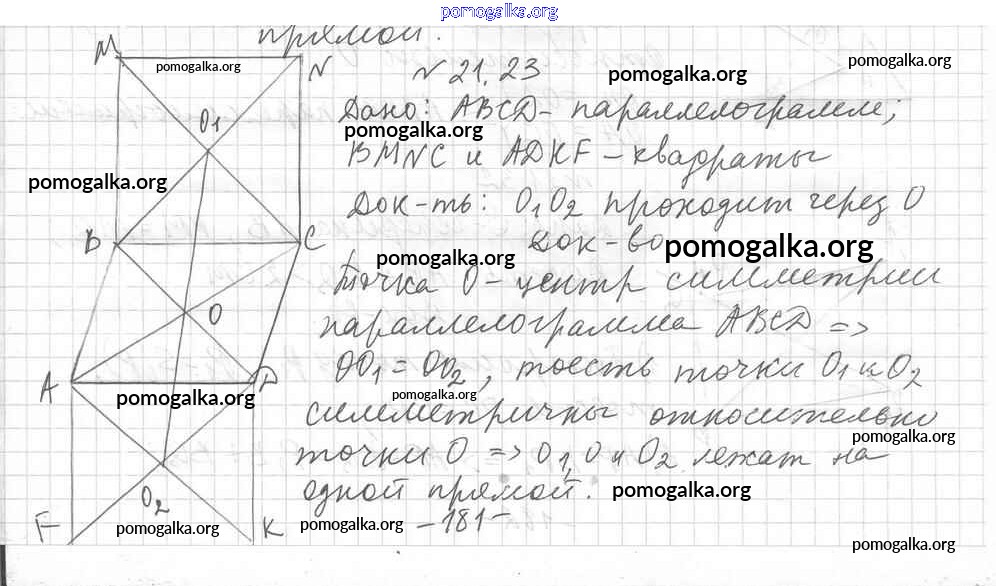 pomogalka.org
прямой.
M
N
pomogalka.org
N 21.23
pomogalka.org
pomogalka.org
Дано: ABCD - параллелограмм;
O1
pomogalka.org
BMNC и ADKF - квадраты
pomogalka.org
Док-ть: O1O2 проходит через O
B
C
Док-во
pomogalka.org
pomogalka.org
Точка O - центр симметрии
O
параллелограмма ABCD =>
A
D
OO1 = OO2, тоесть точки O1 и O2
pomogalka.org
pomogalka.org
симметричны относительно
pomogalka.org
точки O => O1, O и O2 лежат на
одной прямой.
pomogalka.org
O2
F
K
pomogalka.org
pomogalka.org
- 181 -
pomogalka.org